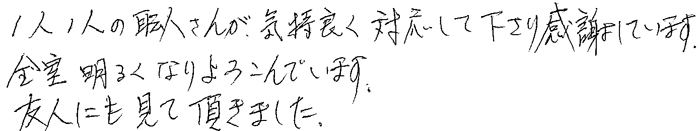 1人1人の職人さんが気持良く対応して下さり感謝しています.
全室明るくなりよろこんでいます.
友人にも見て頂きました.